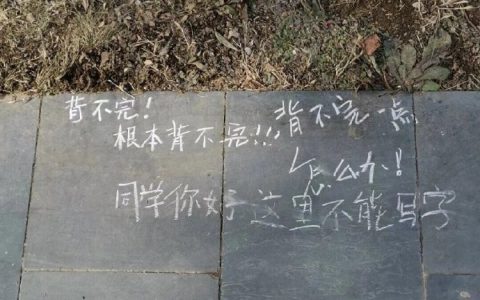 背不完!
根本背不完!!!
背不完一点
怎么办!
同学你好这里不能写字